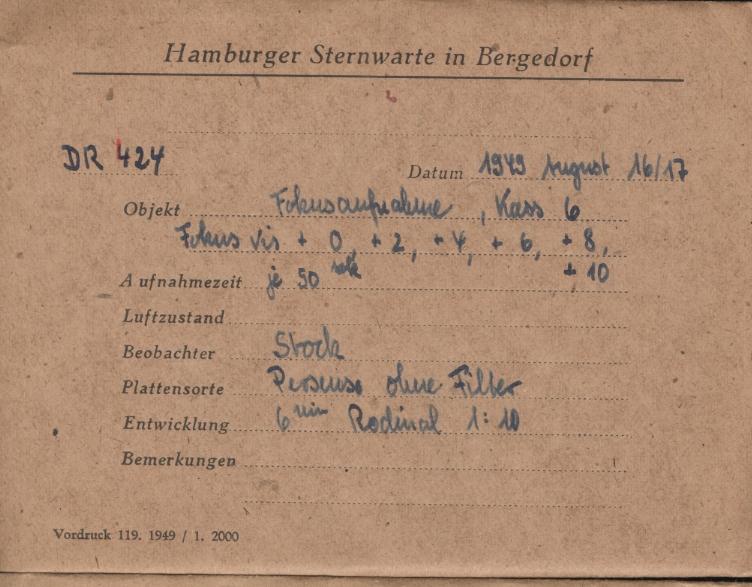 Hamburger Sternwarte in Bergedorf
DR 424
Datum 1949 August 16/17
Objekt Fokusaufnahme, Kass 6
Fokus vis + 0, + 2, + 4, + 6, + 8,
+ 10
Aufnahmezeit je 50 sek
Luftzustand
Beobachter Stock
Plattensorte Persenso ohne Filter
Entwicklung 6 min Rodinal 1:10
Bemerkungen
Vordruck 119. 1949 / 1. 2000